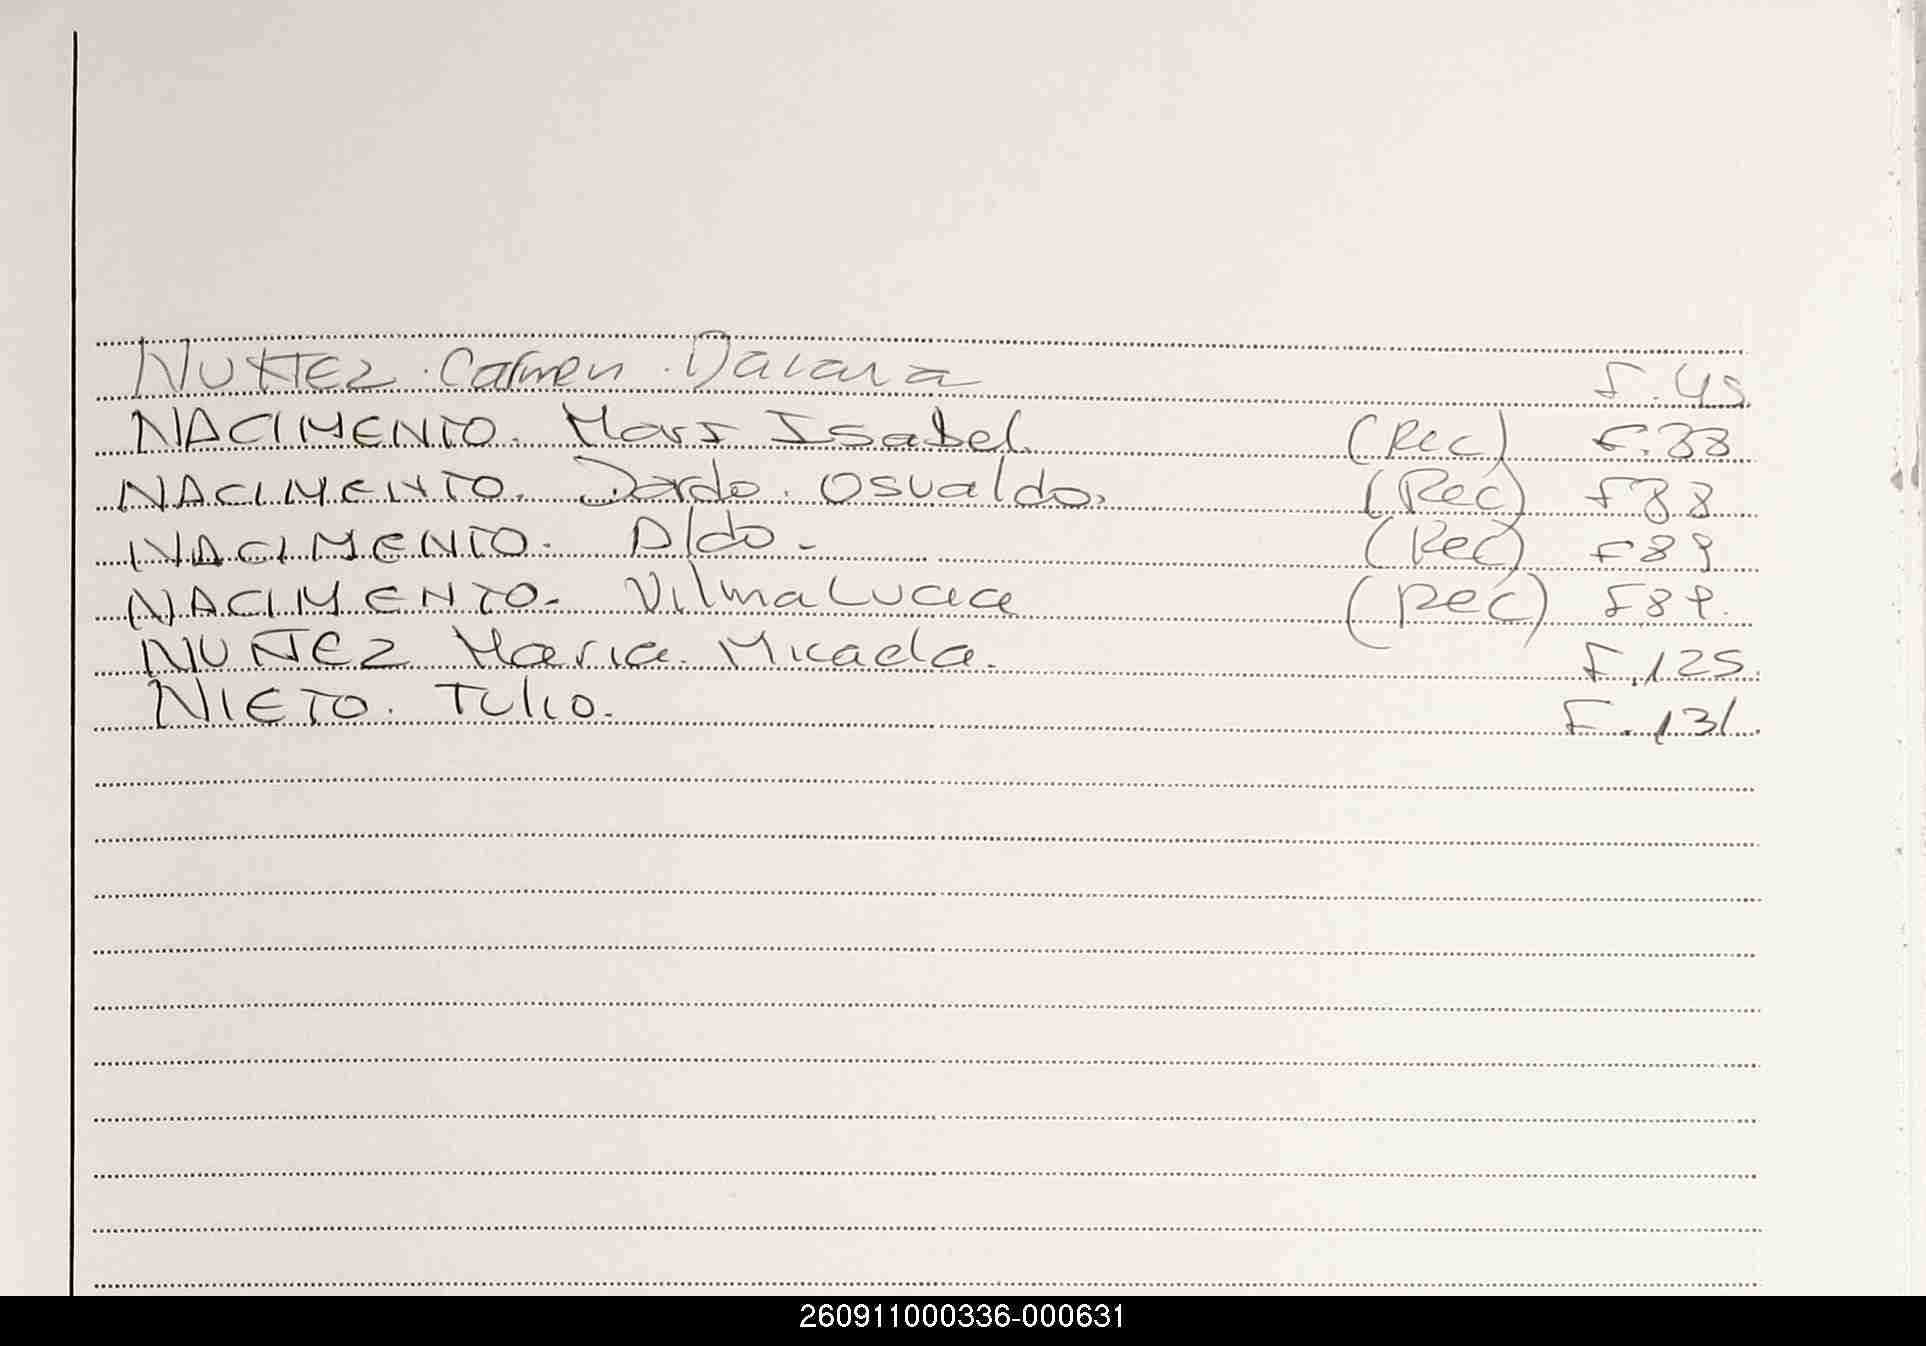 NUÑEZ. Carmen. Daiana F.45
NACIMENTO. Mary Isabel. (Rec) F.88
NACIMENTO. Dardo. Osvaldo. (Rec) F88
NACIMENTO. Aldo.- (Rec) F89
NACIMENTO- Vilma Lucia (Rec) F89.
NUÑEZ Maria. Micaela. F.125.
NIETO. Tulio. F.131.
260911000336-000631